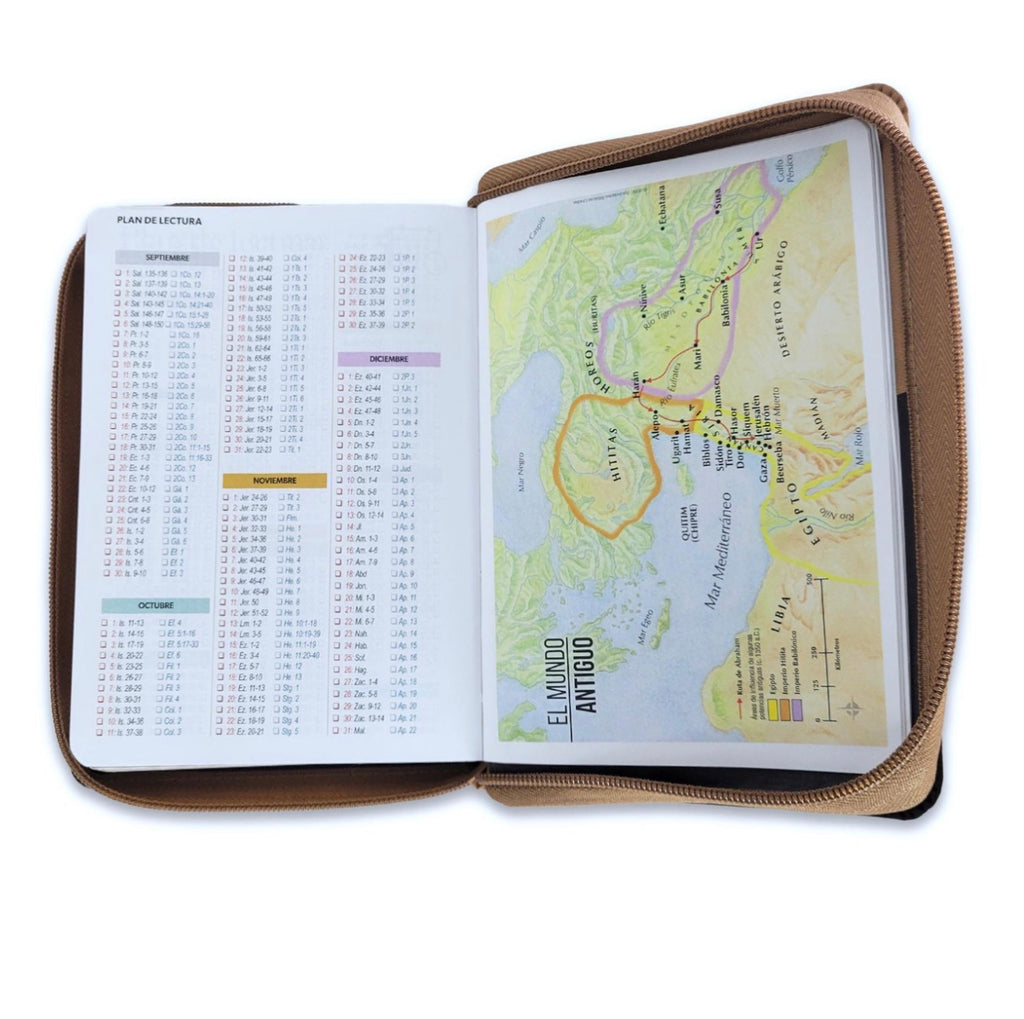 PLAN DE LECTURA
SEPTIEMBRE
1: Sal. 135-136 1Co. 12
2: Sal. 137-139 1Co. 13
3: Sal. 140-142 1Co. 14:1-20
4: Sal. 143-145 1Co. 14:21-40
5: Sal. 146-147 1Co. 15:1-28
6: Sal. 148-150 1Co. 15:29-58
7: Pr. 1-2 1Co. 16
8: Pr. 3-5 2Co. 1
9: Pr. 6-7 2Co. 2
10: Pr. 8-9 2Co. 3
11: Pr. 10-12 2Co. 4
12: Pr. 13-15 2Co. 5
13: Pr. 16-18 2Co. 6
14: Pr. 19-21 2Co. 7
15: Pr. 22-24 2Co. 8
16: Pr. 25-26 2Co. 9
17: Pr. 27-29 2Co. 10
18: Pr. 30-31 2Co. 11:1-15
19: Ec. 1-3 2Co. 11:16-33
20: Ec. 4-6 2Co. 12
21: Ec. 7-9 2Co. 13
22: Ec. 10-12 Gá. 1
23: Cnt. 1-3 Gá. 2
24: Cnt. 4-5 Gá. 3
25: Cnt. 6-8 Gá. 4
26: Is. 1-2 Gá. 5
27: Is. 3-4 Gá. 6
28: Is. 5-6 Ef. 1
29: Is. 7-8 Ef. 2
30: Is. 9-10 Ef. 3
OCTUBRE
1: Is. 11-13 Ef. 4
2: Is. 14-15 Ef. 5:1-16
3: Is. 17-19 Ef. 5:17-33
4: Is. 20-22 Ef. 6
5: Is. 23-25 Fil. 1
6: Is. 26-27 Fil. 2
7: Is. 28-29 Fil. 3
8: Is. 30-31 Fil. 4
9: Is. 32-33 Col. 1
10: Is. 34-36 Col. 2
11: Is. 37-38 Col. 3
12: Is. 39-40 Col. 4
13: Is. 41-42 1Ts. 1
14: Is. 43-44 1Ts. 2
15: Is. 45-46 1Ts. 3
16: Is. 47-49 1Ts. 4
17: Is. 50-52 1Ts. 5
18: Is. 53-55 2Ts. 1
19: Is. 56-58 2Ts. 2
20: Is. 59-61 2Ts. 3
21: Is. 62-64 1Ti. 1
22: Is. 65-66 1Ti. 2
23: Jer. 1-2 1Ti. 3
24: Jer. 3-5 1Ti. 4
25: Jer. 6-8 1Ti. 5
26: Jer. 9-11 1Ti. 6
27: Jer. 12-14 2Ti. 1
28: Jer. 15-17 2Ti. 2
29: Jer. 18-19 2Ti. 3
30: Jer. 20-21 2Ti. 4
31: Jer. 22-23 Tit. 1
NOVIEMBRE
1: Jer. 24-26 Tit. 2
2: Jer. 27-29 Tit. 3
3: Jer. 30-31 Flm.
4: Jer. 32-33 He. 1
5: Jer. 34-36 He. 2
6: Jer. 37-39 He. 3
7: Jer. 40-42 He. 4
8: Jer. 43-45 He. 5
9: Jer. 46-47 He. 6
10: Jer. 48-49 He. 7
11: Jer. 50 He. 8
12: Jer. 51-52 He. 9
13: Lm. 1-2 He. 10:1-18
14: Lm. 3-5 He. 10:19-39
15: Ez. 1-2 He. 11:1-19
16: Ez. 3-4 He. 11:20-40
17: Ez. 5-7 He. 12
18: Ez. 8-10 He. 13
19: Ez. 11-13 Stg. 1
20: Ez. 14-15 Stg. 2
21: Ez. 16-17 Stg. 3
22: Ez. 18-19 Stg. 4
23: Ez. 20-21 Stg. 5
24: Ez. 22-23 1P. 1
25: Ez. 24-26 1P. 2
26: Ez. 27-29 1P. 3
27: Ez. 30-32 1P. 4
28: Ez. 33-34 1P. 5
29: Ez. 35-36 2P. 1
30: Ez. 37-39 2P. 2
DICIEMBRE
1: Ez. 40-41 2P. 3
2: Ez. 42-44 1Jn. 1
3: Ez. 45-46 1Jn. 2
4: Ez. 47-48 1Jn. 3
5: Dn. 1-2 1Jn. 4
6: Dn. 3-4 1Jn. 5
7: Dn. 5-7 2Jn.
8: Dn. 8-10 3Jn.
9: Dn. 11-12 Jud.
10: Os. 1-4 Ap. 1
11: Os. 5-8 Ap. 2
12: Os. 9-11 Ap. 3
13: Os. 12-14 Ap. 4
14: Jl. Ap. 5
15: Am. 1-3 Ap. 6
16: Am. 4-6 Ap. 7
17: Am. 7-9 Ap. 8
18: Abd Ap. 9
19: Jon. Ap. 10
20: Mi. 1-3 Ap. 11
21: Mi. 4-5 Ap. 12
22: Mi. 6-7 Ap. 13
23: Nah. Ap. 14
24: Hab. Ap. 15
25: Sof. Ap. 16
26: Hag. Ap. 17
27: Zac. 1-4 Ap. 18
28: Zac. 5-8 Ap. 19
29: Zac. 9-12 Ap. 20
30: Zac. 13-14 Ap. 21
31: Mal. Ap. 22
EL MUNDO
ANTIGUO
Ruta de Abraham
Áreas de influencia de algunas
potencias antiguas (c. 1350 a.C.)
Egipto
Imperio Hitita
Imperio Babilónico
0 125 250 500
Kilómetros
Mar Negro
Mar Caspio
Mar Egeo
Mar Mediterráneo
QUITIM
(CHIPRE)
HITITAS
HOREOS
(HURITAS)
Harán
Alepo
Ugarit
Hamat
Biblos
Sidón
Tiro
Dor
Damasco
Hasor
Siquem
Jerusalén
Hebrón
Gaza
Beerseba
Mar Muerto
SIRIA
Río Éufrates
Mari
Río Tigris
Nínive
Asur
MESOPOTAMIA
BABILONIA
Babilonia
SUMER
Ur
Susa
Ecbatana
Golfo
Pérsico
DESIERTO ARÁBIGO
MADIÁN
Mar Rojo
Río Nilo
EGIPTO
LIBIA